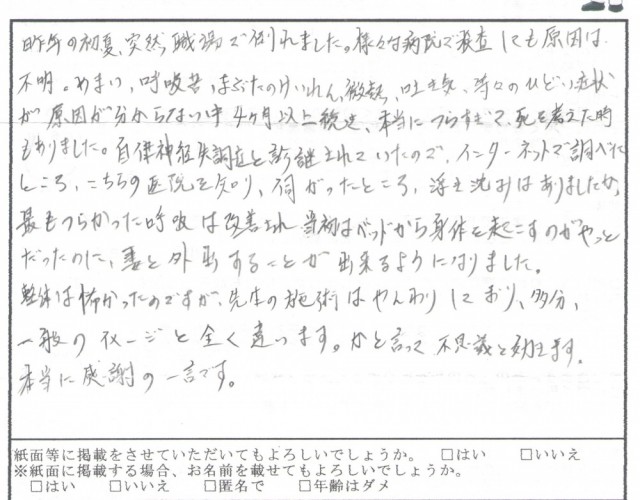 昨年の初夏、突然、職場で倒れました。様々な病院で検査しても原因は
不明。めまい、呼吸苦、まぶたのけいれん、微熱、吐き気、等々のひどい症状
が原因が分からない中4ヶ月以上続き、本当につらすぎて、死を考えた時
もありました。自律神経失調症と診断されていたので、インターネットで調べた
ところ、こちらの医院を知り、伺がったところ、浮き沈みはありましたが、
最もつらかった呼吸は改善され当初はベッドから身体を起こすのがやっと
だったのに、外出することが出来るようになりました。
整体は怖かったのですが、先生の施術はやんわりしており、多分、
一般のイメージと全く違います。かと言って不思議と効きます。
本当に感謝の一言です。
紙面等に掲載をさせていただいてもよろしいでしょうか。 □はい □いいえ
※紙面に掲載する場合、お名前を載せてもよろしいでしょうか。
□はい □いいえ □匿名で □年齢はダメ